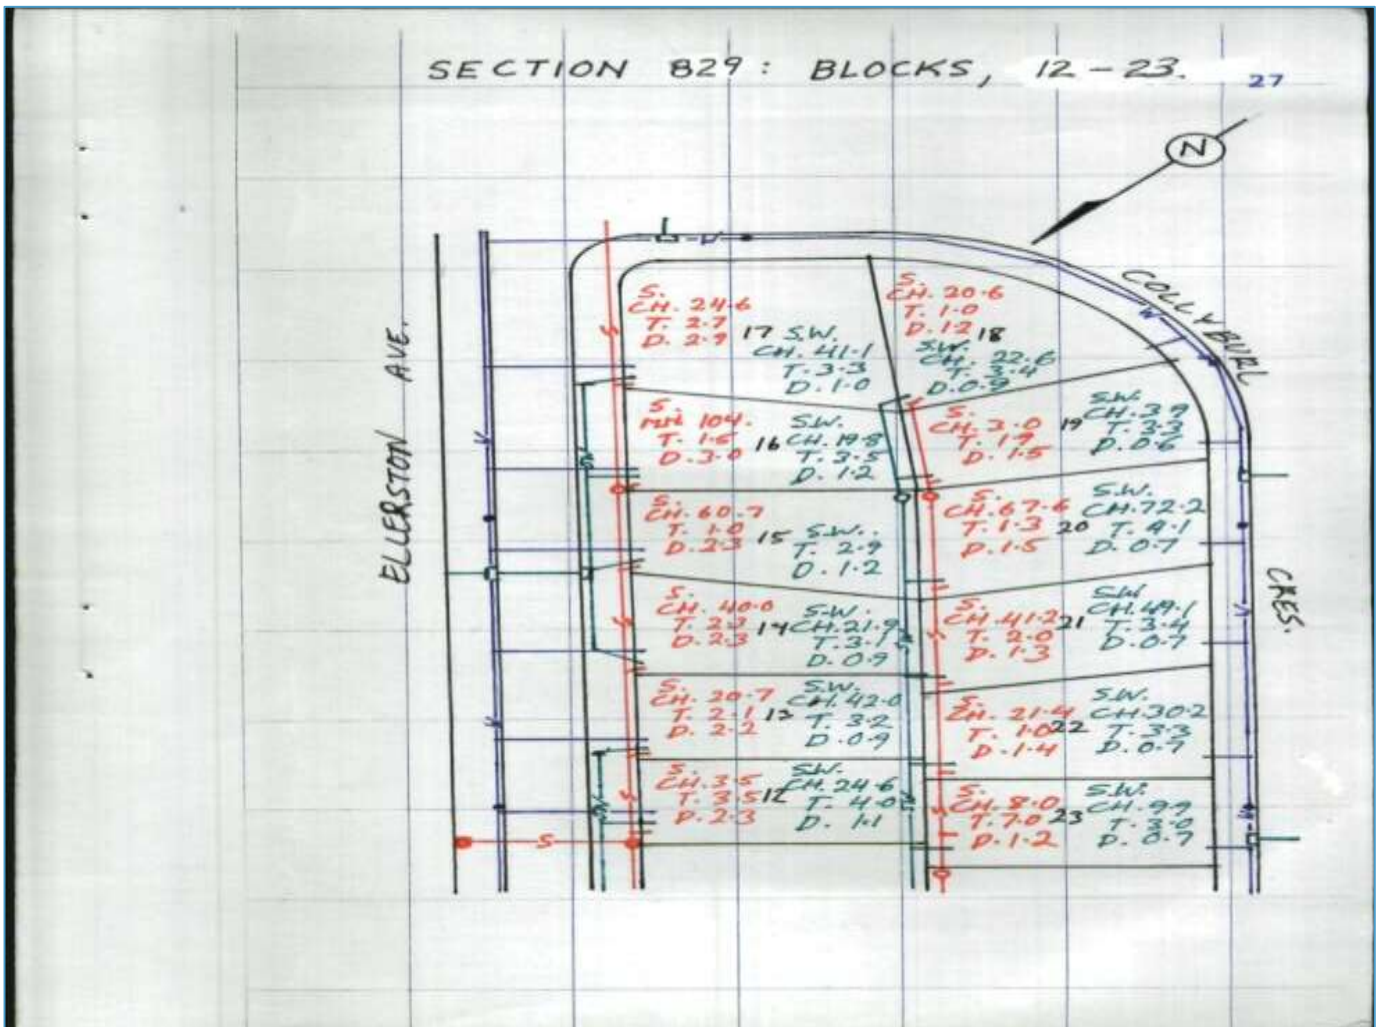 SECTION 829: BLOCKS, 12-23.
27
N
ELLERSTON AVE.
COLLYBURL
CRES.
S.
CH. 24.6
T. 2.7
D. 2.9
17
S.W.
CH. 41.1
T. 3.3
D. 1.0
S.
CH. 20.6
T. 1.0
D. 1.2
18
S.W.
CH. 22.6
T. 3.4
D. 0.9
S.
MH 104.
T. 1.5
D. 3.0
16
S.W.
CH. 19.8
T. 3.5
D. 1.2
S.
CH. 3.0
T. 1.9
D. 1.5
19
S.W.
CH. 3.9
T. 3.3
D. 0.6
S.
CH. 60.7
T. 1.0
D. 2.3
15
S.W.
T. 2.9
D. 1.2
S.
CH. 67.6
T. 1.3
D. 1.5
20
S.W.
CH. 72.2
T. 4.1
D. 0.7
S.
CH. 40.0
T. 2.3
D. 2.3
14
S.W.
CH. 21.9
T. 3.1
D. 0.9
S.
CH. 41.2
T. 2.0
D. 1.3
21
S.W
CH. 49.1
T. 3.4
D. 0.7
S.
CH. 20.7
T. 2.1
D. 2.2
13
S.W.
CH. 42.0
T. 3.2
D. 0.9
S.
CH. 21.4
T. 1.0
D. 1.4
22
S.W.
CH. 30.2
T. 3.3
D. 0.7
S.
CH. 3.5
T. 3.5
D. 2.3
12
S.W.
CH. 24.6
T. 4.0
D. 1.1
S.
CH. 8.0
T. 7.0
D. 1.2
23
S.W.
CH. 9.9
T. 3.0
D. 0.7
S